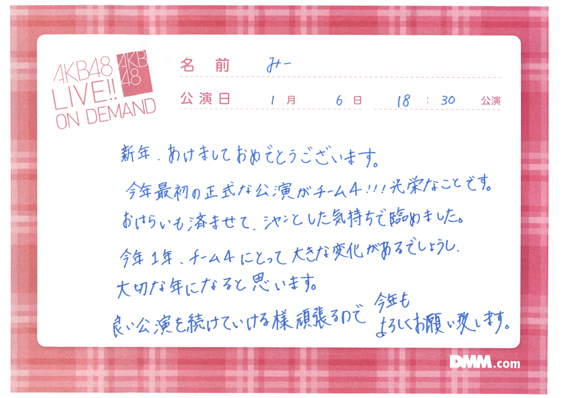 AKB48
LIVE!!
ON DEMAND
AKB
48
名 前 みー
公演日 1 月 6 日 18 : 30 公演
新年、あけましておめでとうございます。
今年最初の正式な公演がチーム4!!!光栄なことです。
おはらいも済ませて、シャンとした気持ちで臨めました。
今年1年、チーム4にとって大きな変化があるでしょうし、
大切な年になると思います。
良い公演を続けていける様頑張るので 今年も
よろしくお願い致します。
DMM.com